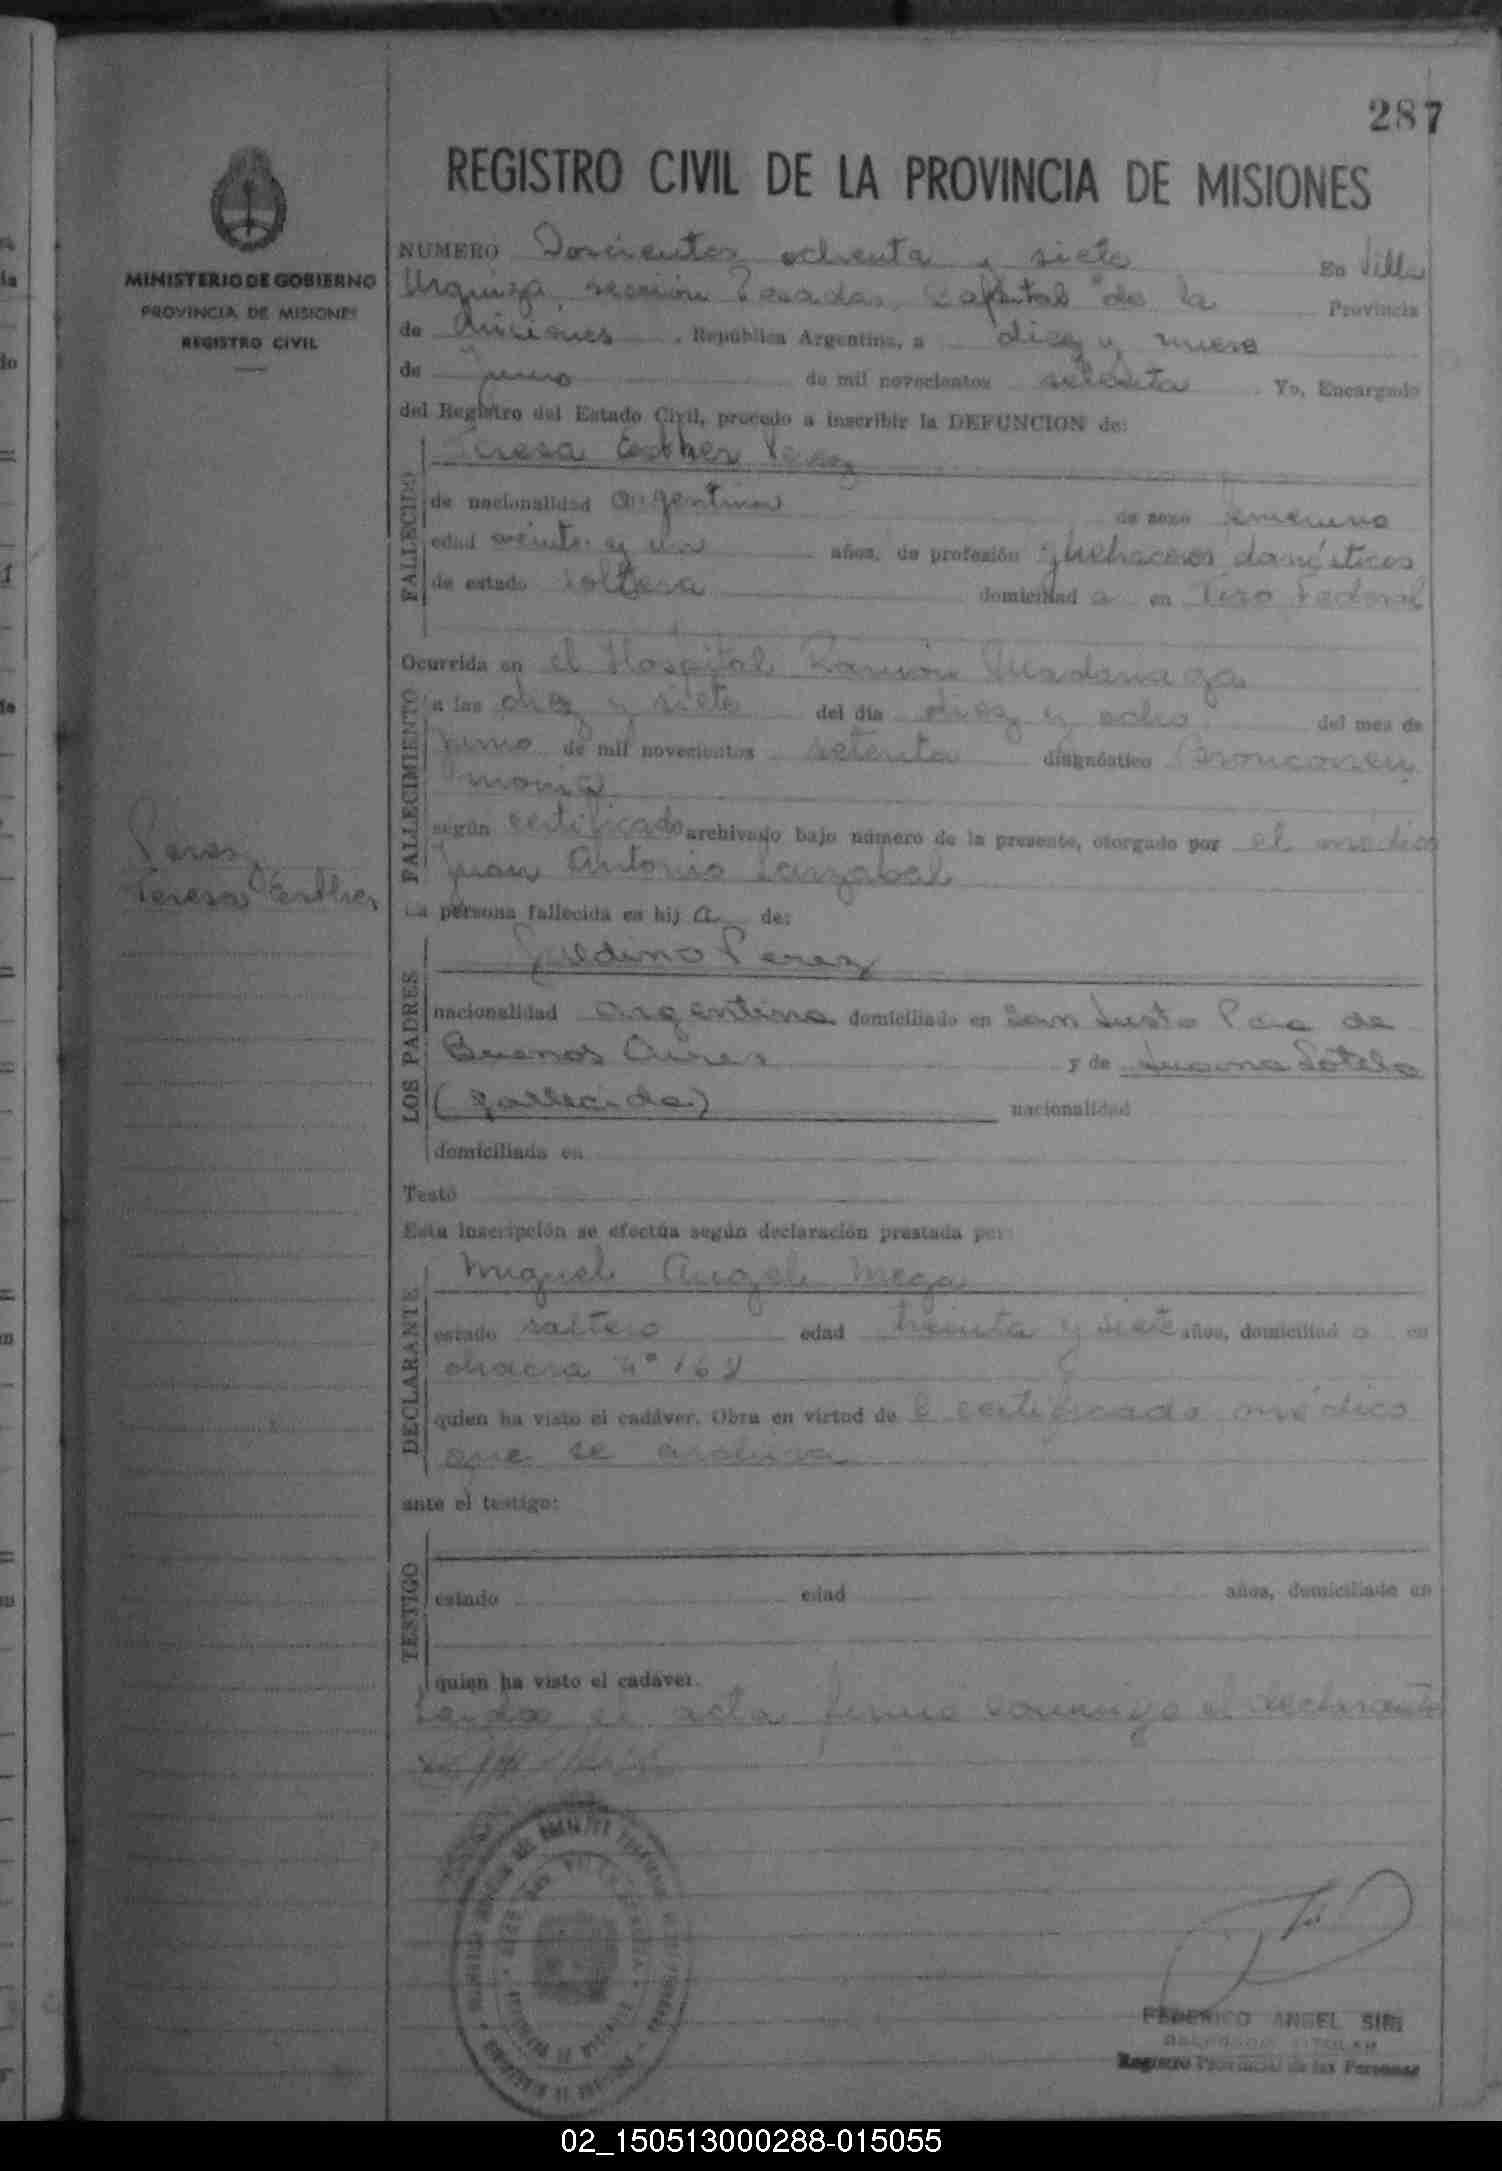 287
REGISTRO CIVIL DE LA PROVINCIA DE MISIONES
MINISTERIO DE GOBIERNO
PROVINCIA DE MISIONES
REGISTRO CIVIL
NUMERO Doscientos ochenta y siete En Villa
Urquiza, sección Posadas, Capital de la Provincia
de Misiones, República Argentina, a diez y nueve
de Junio de mil novecientos setenta. Yo, Encargado
del Registro del Estado Civil, procedo a inscribir la DEFUNCION de:
Teresa Esther Perez
FALLECIDO
de nacionalidad argentina de sexo femenino
edad veinte y un años, de profesión quehaceres domésticos
de estado soltera domiciliad a en Tiro Federal
Ocurrida en el Hospital Ramón Madariaga
FALLECIMIENTO
a las diez y siete del día diez y ocho del mes de
Junio de mil novecientos setenta diagnóstico Bronconeu
monia
según certificado archivado bajo número de la presente, otorgado por el médico
Juan Antonio Larzabal
Perez
Teresa Esther
La persona fallecida es hij a de:
LOS PADRES
Galdino Perez
nacionalidad argentina domiciliado en San Justo Pcia de
Buenos Aires y de Juana Sotelo
(fallecida) nacionalidad
domiciliada en
Testó
Esta inscripción se efectúa según declaración prestada por:
DECLARANTE
Miguel Angel Meza
estado soltero edad treinta y siete años, domiciliad o en
chacra Nº 162
quien ha visto el cadáver. Obra en virtud de l certificado médico
que se archiva
ante el testigo:
TESTIGO
estado edad años, domiciliado en
quien ha visto el cadáver.
Leida el acta firma conmigo el declarante
FEDERICO ANGEL SIRI
Registro Provincial de las Personas
02_150513000288-015055